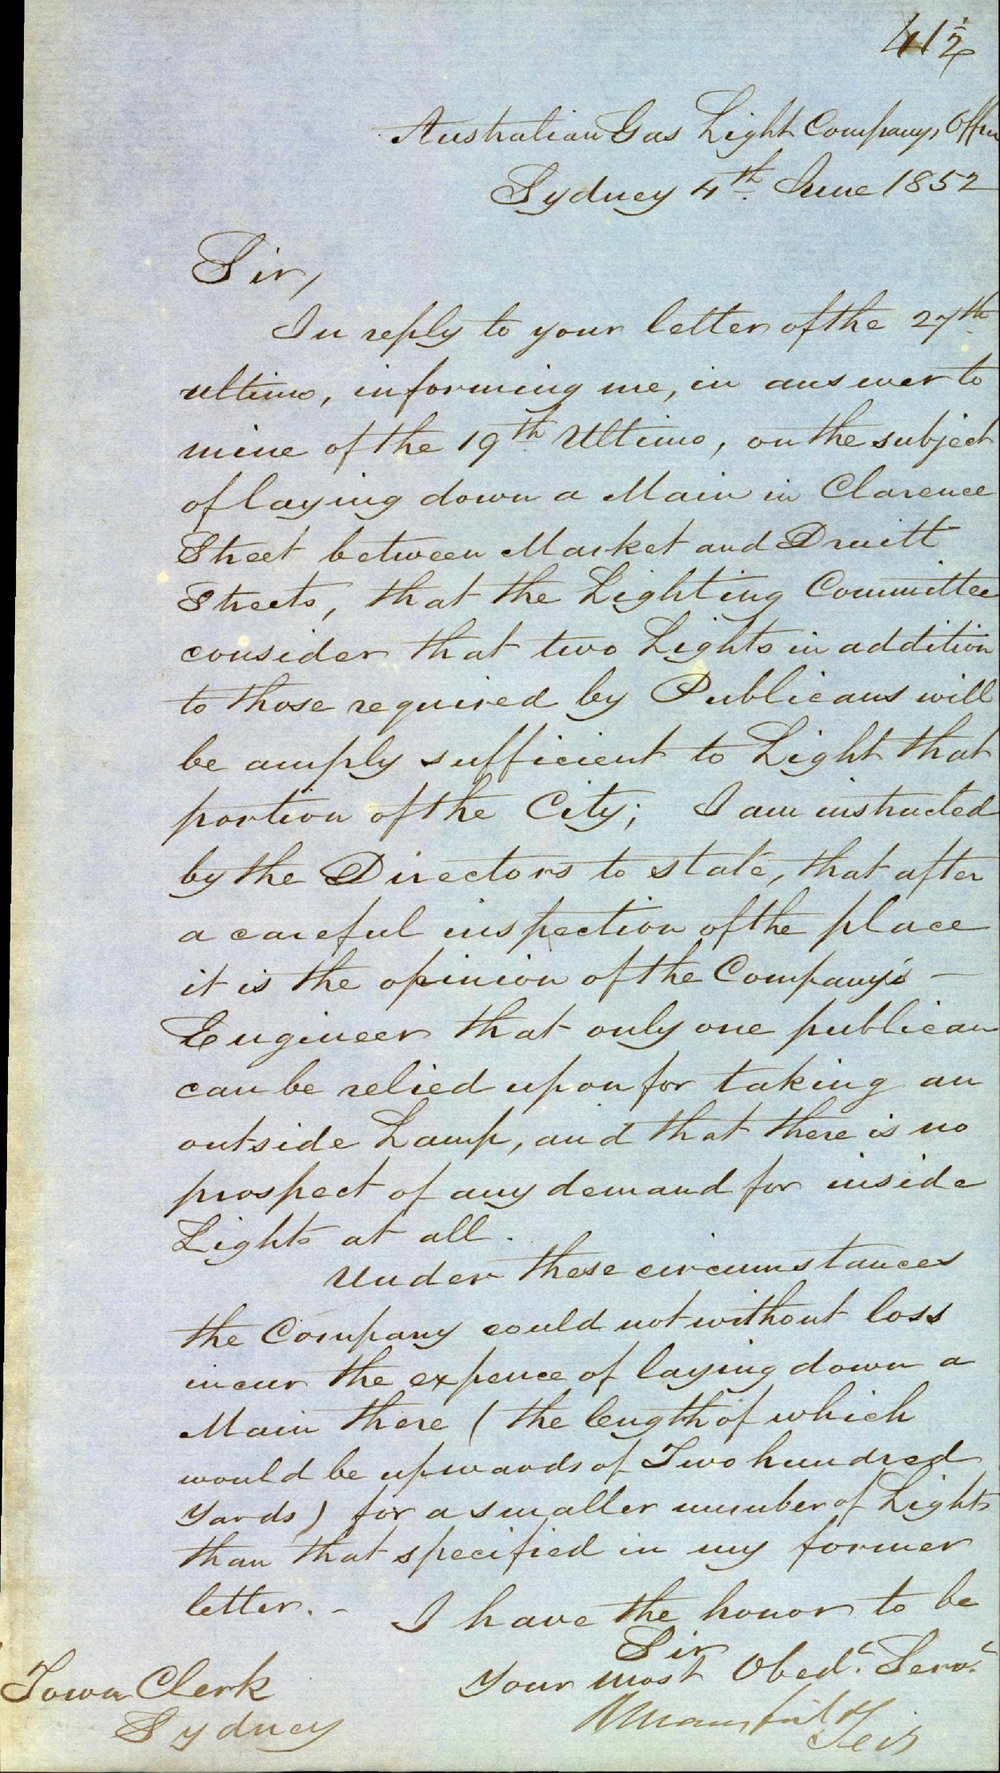 41½
Australian Gas Light Company, Office
Sydney 4th June 1852
Sir,
In reply to your letter of the 27th
ultimo, informing me, in answer to
mine of the 19th Ultimo, on the subject
of laying down a Main in Clarence
Street between Market and Druitt
Streets, that the Lighting Committee
consider that two Lights in addition
to those required by Publicans will
be amply sufficient to Light that
portion of the City; I am instructed
by the Directors to state, that after
a careful inspection of the place
it is the opinion of the Company's —
Engineer that only one publican
can be relied upon for taking an
outside Lamp, and that there is no
prospect of any demand for inside
Lights at all.
Under these circumstances
the Company could not without loss
incur the expence of laying down a
Main there (the length of which
would be upwards of Two hundred
Yards) for a smaller number of Lights
than that specified in my former
letter. -
I have the honor to be
Sir
Your most Obedt. Servt.
Town Clerk
Sydney